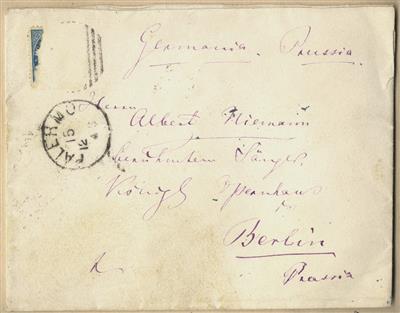 Germania. Prussia.
PALERMO
15
12
Herrn
Albert Niemann
berühmtem Sänger
Königl Opernhaus
Berlin
Prussia